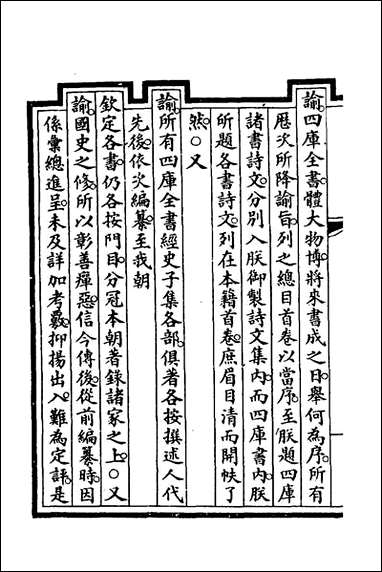 諭四庫全書體大物博將來書成之日舉何為序所有
歷次所降諭旨列之總目首卷以當序至朕題四庫
諸書詩文分別入朕御製詩文集內而四庫書內朕
所題各書詩文列在本籍首卷庶眉目清而開帙了
然○又
諭所有四庫全書經史子集各部俱著各按撰述人代
先後依次編纂至我朝
欽定各書仍各按門目分冠本朝著錄諸家之上○又
諭國史之修所以彰善癉惡信今傳後從前編纂時因
係彙總進呈未及詳加考覈抑揚出入難為定評是